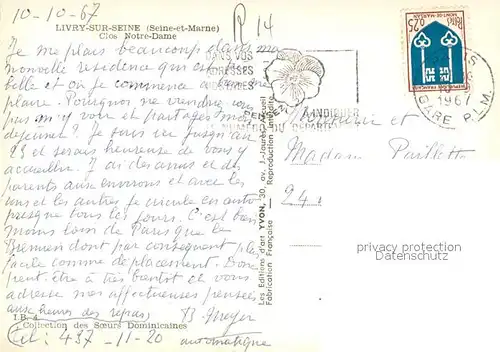 10-10-67
R 14
LIVRY-SUR-SEINE (Seine-et-Marne)
Clos Notre-Dame
Je me plais beaucoup dans ma
nouvelle résidence qui est
belle et où je commence
plaire. Pourquoi ne viendrez
pas m'y voir et partager mon
déjeuner ? Je suis ici jusqu'au
23 et serais heureuse de vous y
accueillir. J'ai des amis et des
parents aux environs et avec les
uns et les autres je circule en auto
presque tous les jours. C'est bien
moins loin de Paris que le
dont par conséquent plus
facile comme déplacement. Donc
peut-être à très bientôt et vous
adresse mes affectueuses pensées
aux heures des repas B. Meyer
I.B. 4
Collection des Sœurs Dominicaines
Tél : 437-11-20 automatique
DANS VOS
ADRESSES
POSTALES
PENSEZ A INDIQUER
NUMERO DU DEPARTEMENT
Les Editions d'art YVON, 30, av. J.-Jaurès, Arcueil
Fabrication Française - Reproduction interdite
0,25
MONT-DE-MARSAN
REPUBLIQUE FRANCAISE
POSTES
PARIS
1967
GARE P.L.M.
Monsieur et
Madame
24
privacy protection
Datenschutz